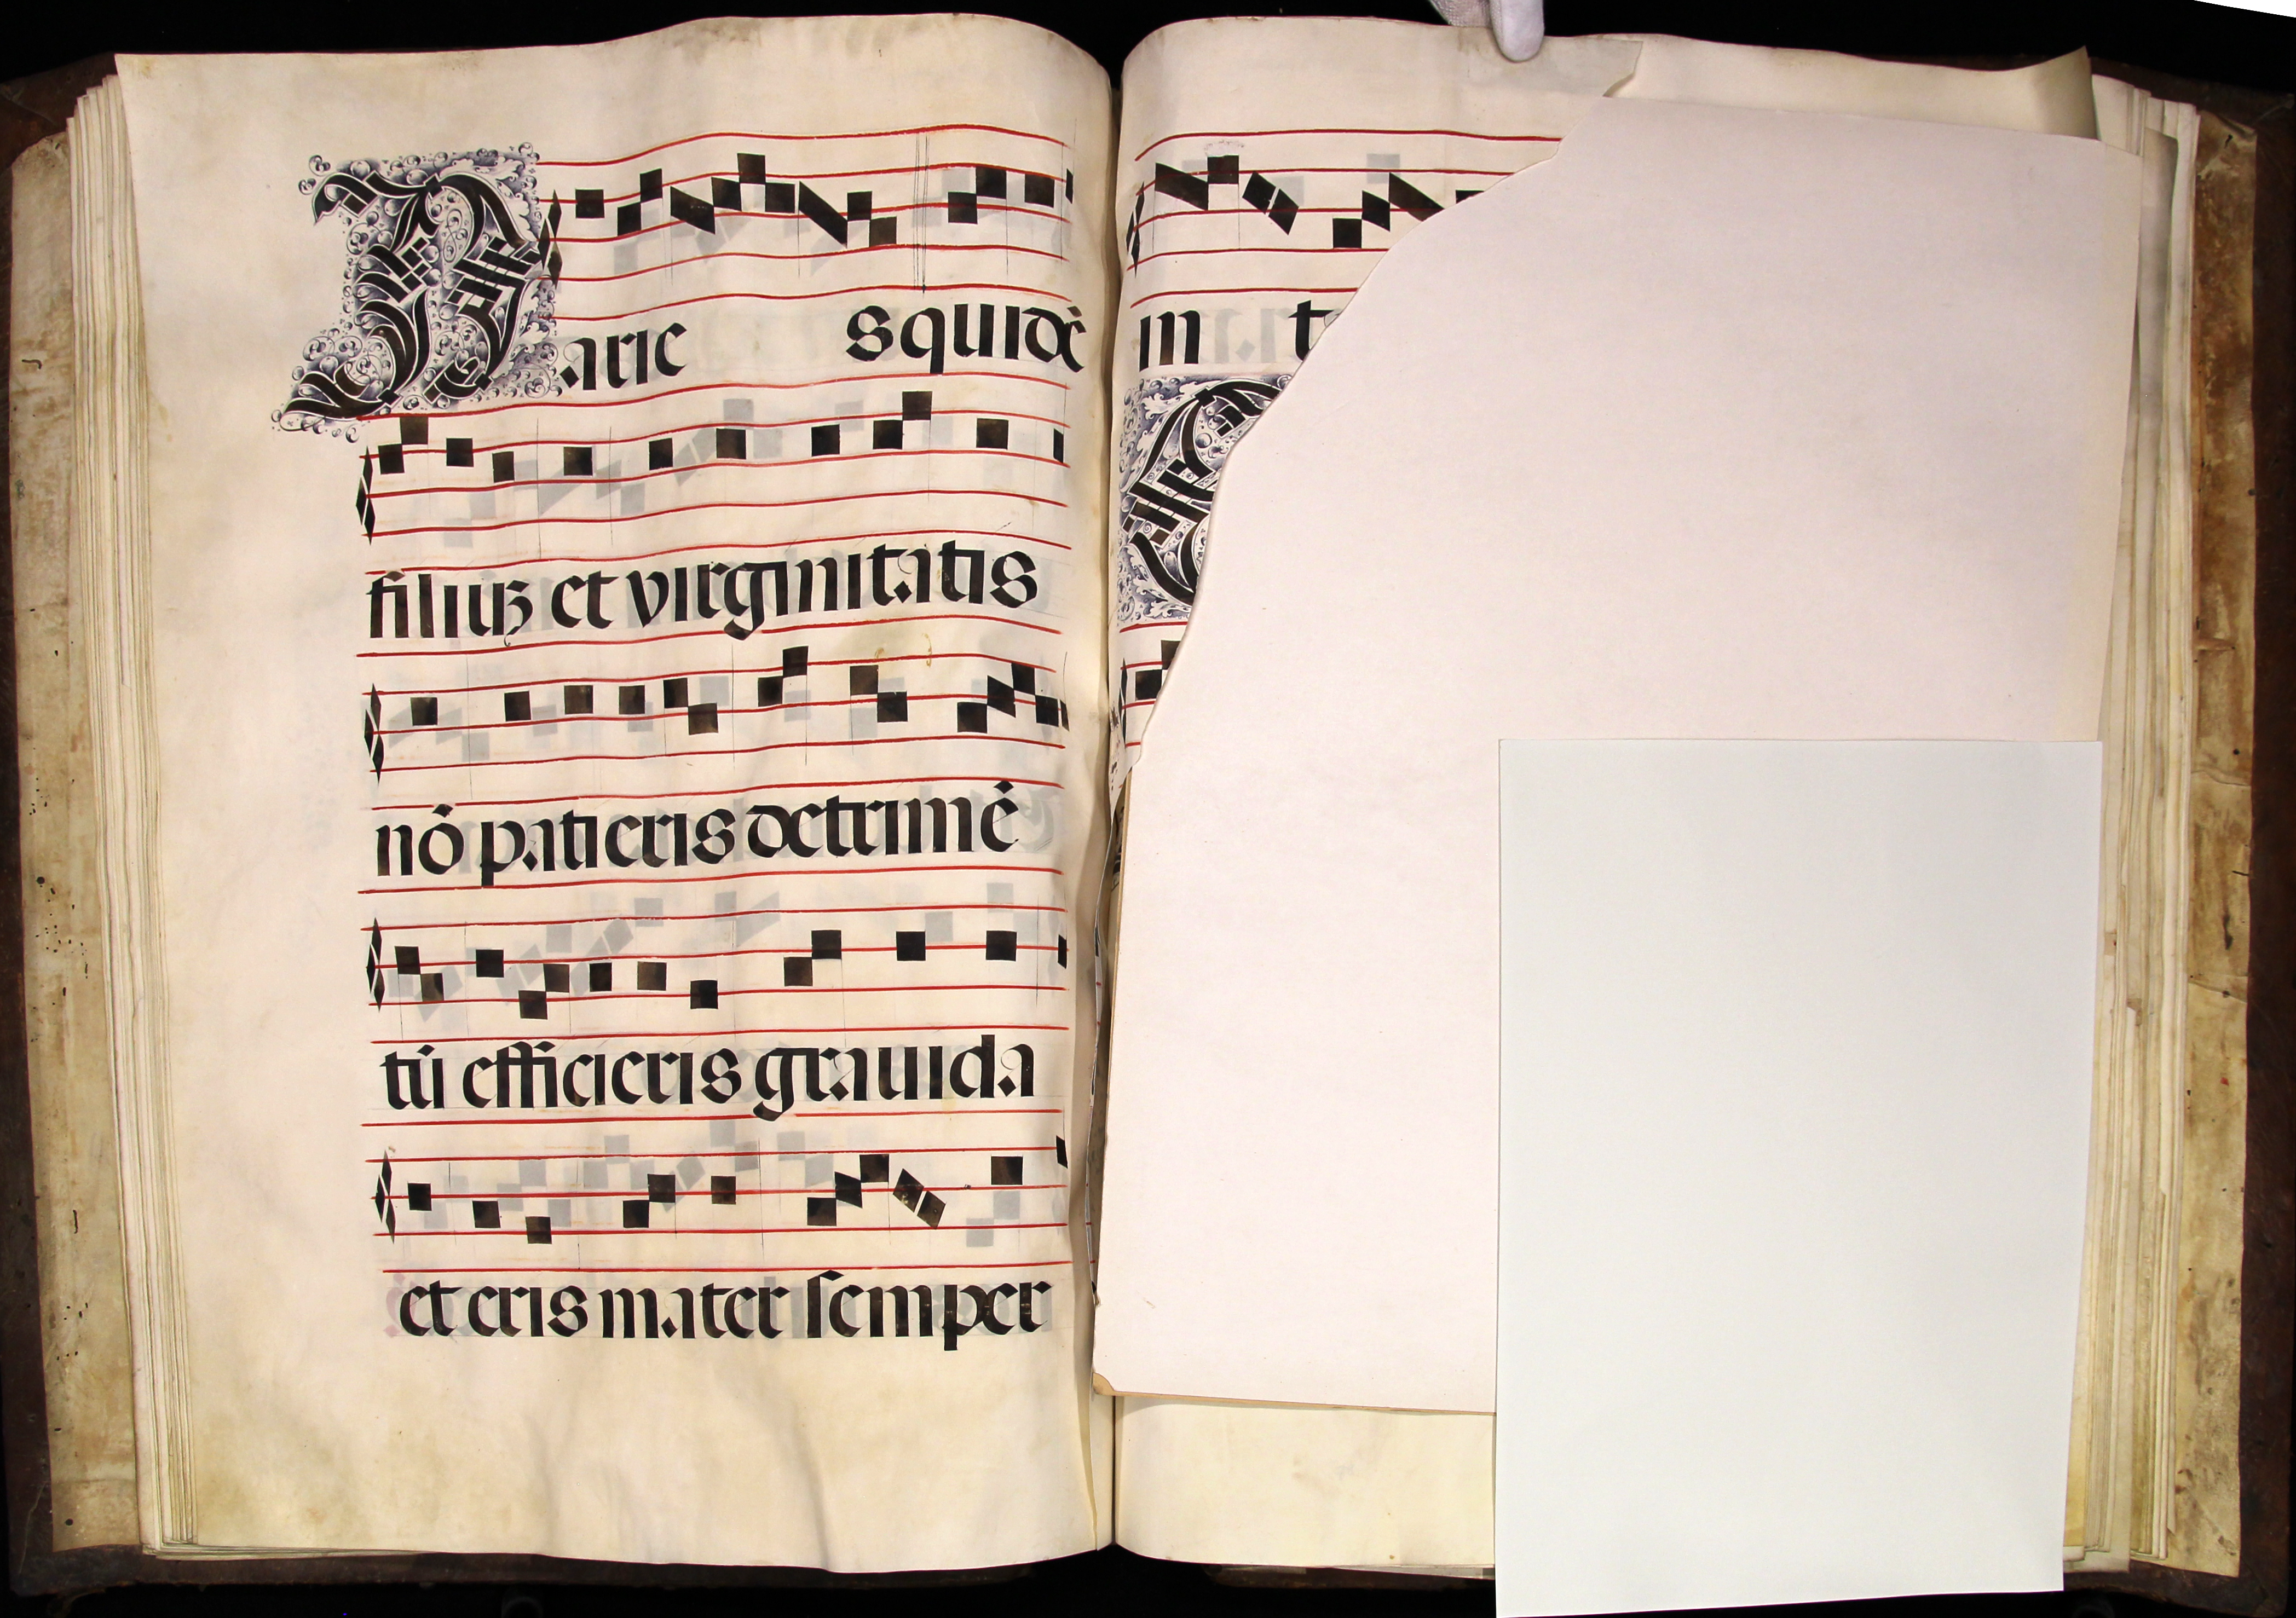 Paries quidē
filiuȝ et virginitatis
nō patieris detrimē
tū efficieris gravida
et eris mater semper
in